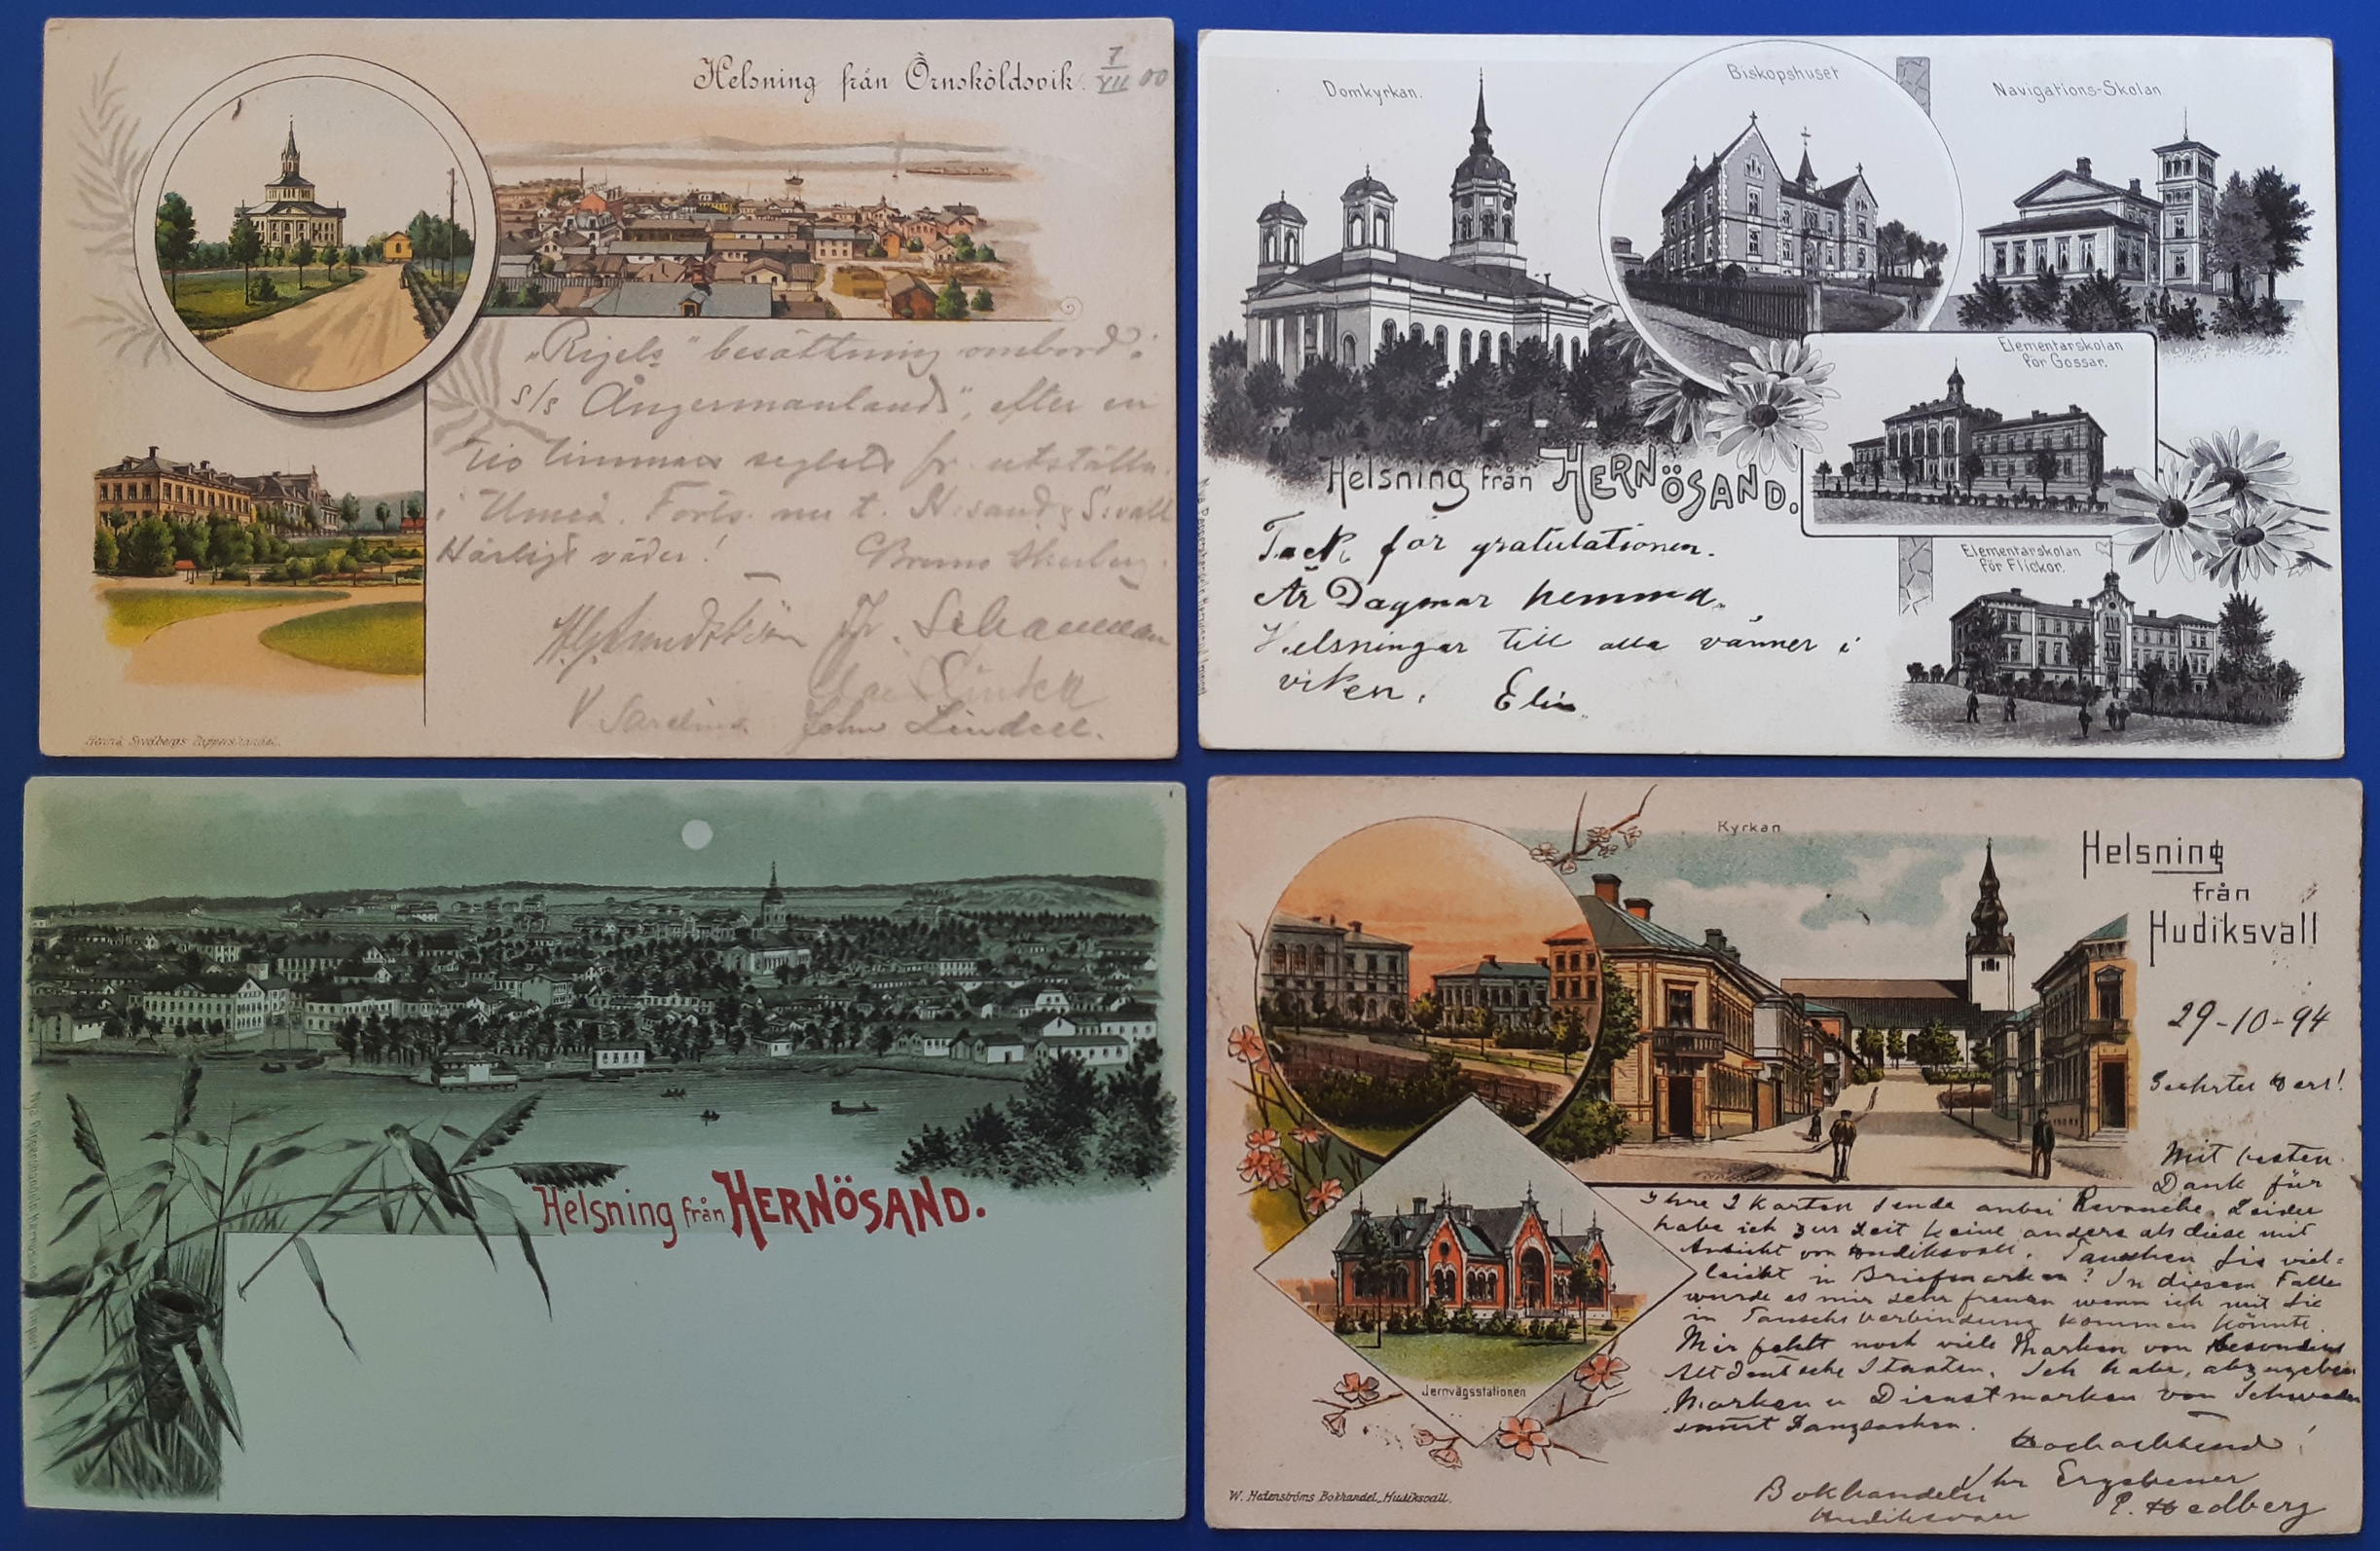 Helsning från Örnsköldsvik.
7/VII 00
"Rigels" besättning ombord i
s/s Ångermanland", efter en
tio timmars seglats fr. utställn.
i Umeå. Forts. nu t. H.sand & S.vall
Härligt väder!
Bruno
John Lindell.
Henrik Svedbergs Pappershandel.
Domkyrkan.
Biskopshuset
Navigations-Skolan
Elementarskolan
för Gossar.
Helsning från HERNÖSAND.
Elementarskolan
för Flickor.
Tack för gratulationen.
Är Dagmar hemma.
Helsningar till alla vänner i
viken.
Elin
Helsning från HERNÖSAND.
Nya Pappershandeln Hernösand
Kyrkan
Helsning
från
Hudiksvall
29-10-94
Geehrter Herr!
Mit besten
Dank für
Ihre 2 Karten sende anbei Revanche. Leider
habe ich zur Zeit keine andere als diese mit
Ansicht von Hudiksvall. Tauschen Sie viel=
leicht in Briefmarken? In diesem Falle
wurde es mir sehr freuen wenn ich mit Sie
in Tauschverbindung kommen könnte.
Mir fehlt noch viele Marken von besonders
Altdeutsche Staaten. Ich habe abzugeben
Marken u Dienstmarken von Schweden
samt Ganzsachen.
Hochachtend!
Ihr Ergebener
Bokhandeln
P. Hedberg
Hudiksvall
Jernvägsstationen
W. Hedenströms Bokhandel, Hudiksvall.